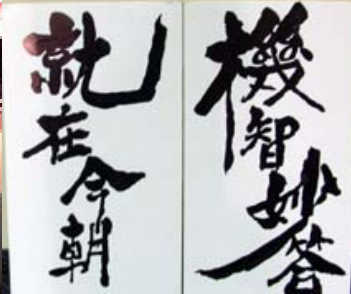 機智妙答
就在今朝